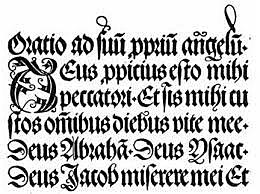 Oratio ad suũ ꝓpriũ angelũ.
Deus ꝓpicius esto mihi
peccatori. Et sis mihi cu
stos om̃ibus diebus vite mee.
Deus Abrahã. Deus Ysaac.
Deus Jacob miserere mei Et